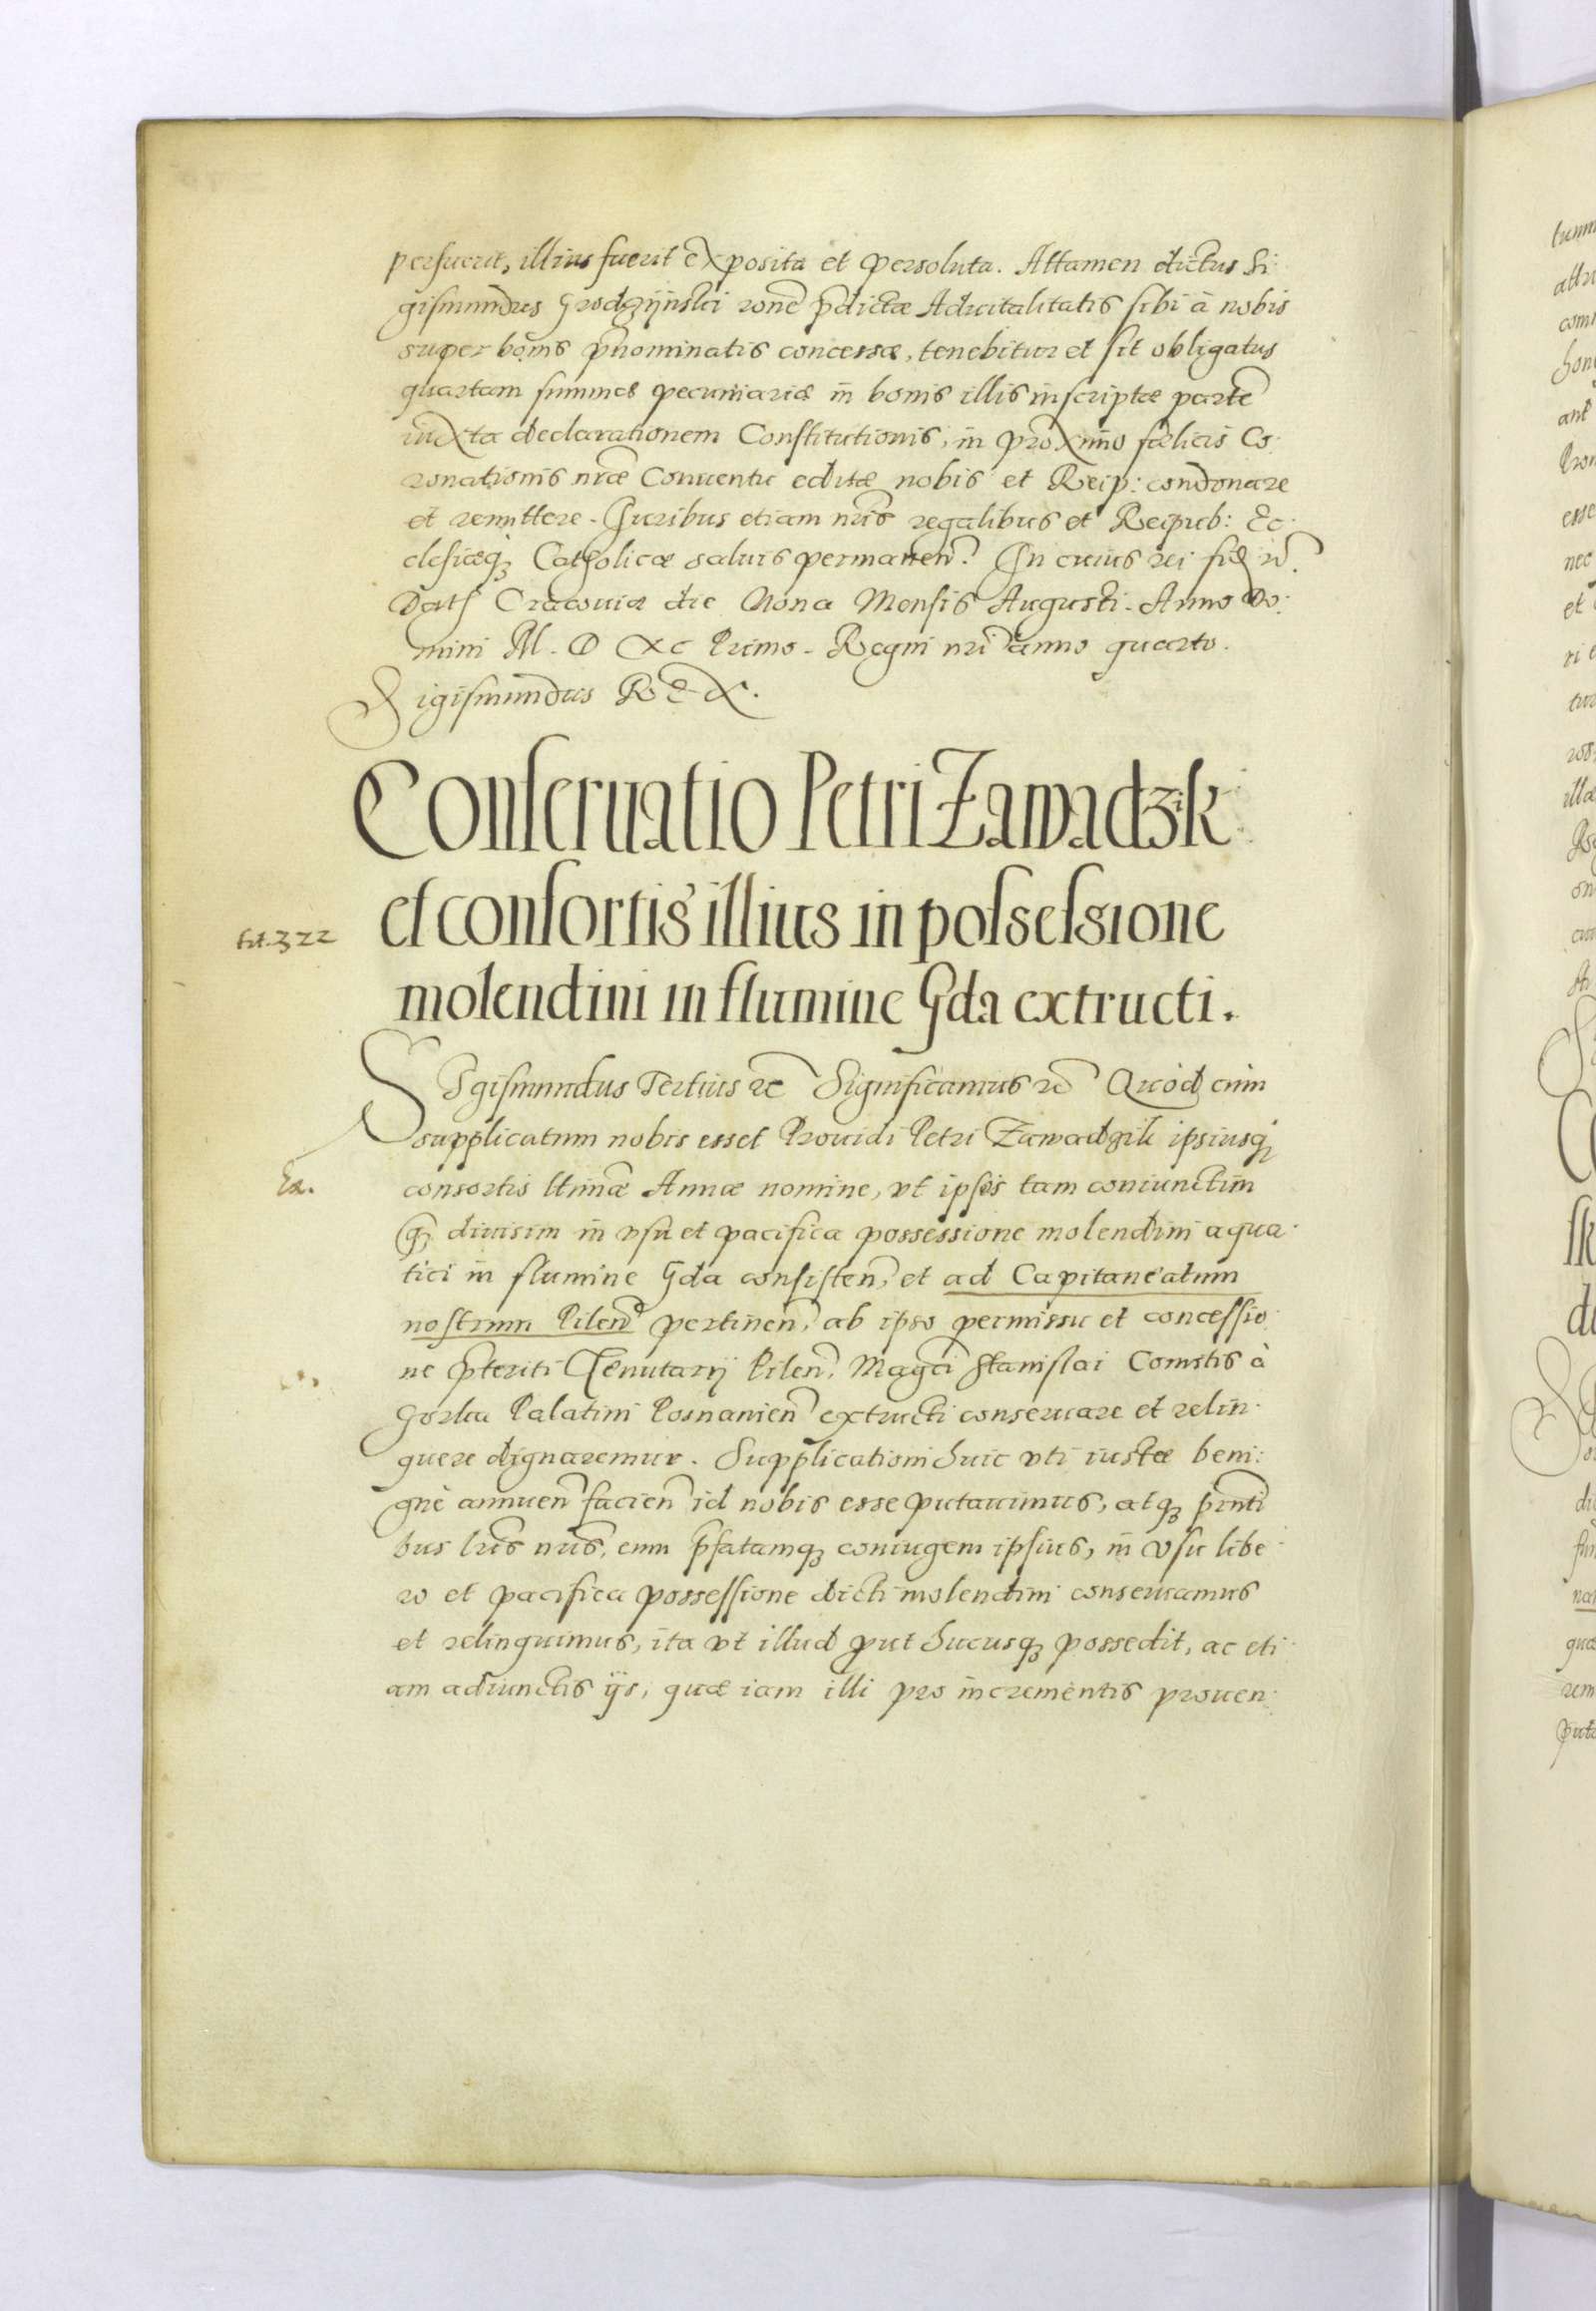 perfuerit, illius fuerit exposita et persoluta. Attamen dictus Si
gismundus Grodzijnski rone pdictæ Aduitalitatis sibi à nobis
super bonis pnominatis concessæ, tenebitur et sit obligatus
quartam summæ pecuniariæ in bonis illis inscriptæ parte
iuxta declarationem Constitutionis, in proximo fælicis Co:
ronationis nræ Conuentu editæ nobis et Reip: condonare
et remittere. Iuribus etiam nris regalibus et Reipub: Ec:
clesiæq3 Catholicæ saluis permanen. In cuius rei fid rc.
Dat Cracouiæ die Nona Mensis Augusti. Anno Do:
mini M. D XC Primo. Regni nri anno quarto.
Sigismundus Rex.
Conseruatio Petri Zawadzik
et consortis illius in possessione
molendini in flumine Gda extructi.
fol. 322
Sigismundus Tertius rc Significamus rc Quod cum
supplicatum nobis esset Prouidi Petri Zawadzik ipsiusq3
Ex.
consortis ltimæ Annæ nomine, vt ipsos tam coniunctim
q3 diuisim in vsu et pacifica possessione molendini aqua:
tici in flumine Gda consisten, et ad Capitaneatum
nostrum Pilen pertinen, ab ipso permissu et concessio:
ne pteriti Tenutarij Pilen, Magci Stanislai Comitis à
Gorka Palatini Posnanien extructi conseruare et relin:
quere dignaremur. Supplicationi huic vti iustæ beni:
gnè annuen facien id nobis esse putauimus, atq3 pnti
bus lris nris, eum pfatamq3 coniugem ipsius, in vsu libe:
ro et pacifica possessione dicti molendini conseruamus
et relinquimus, ita vt illud put hucusq3 possedit, ac eti:
am adiunctis ijs, quæ iam illi pro incrementis prouen: